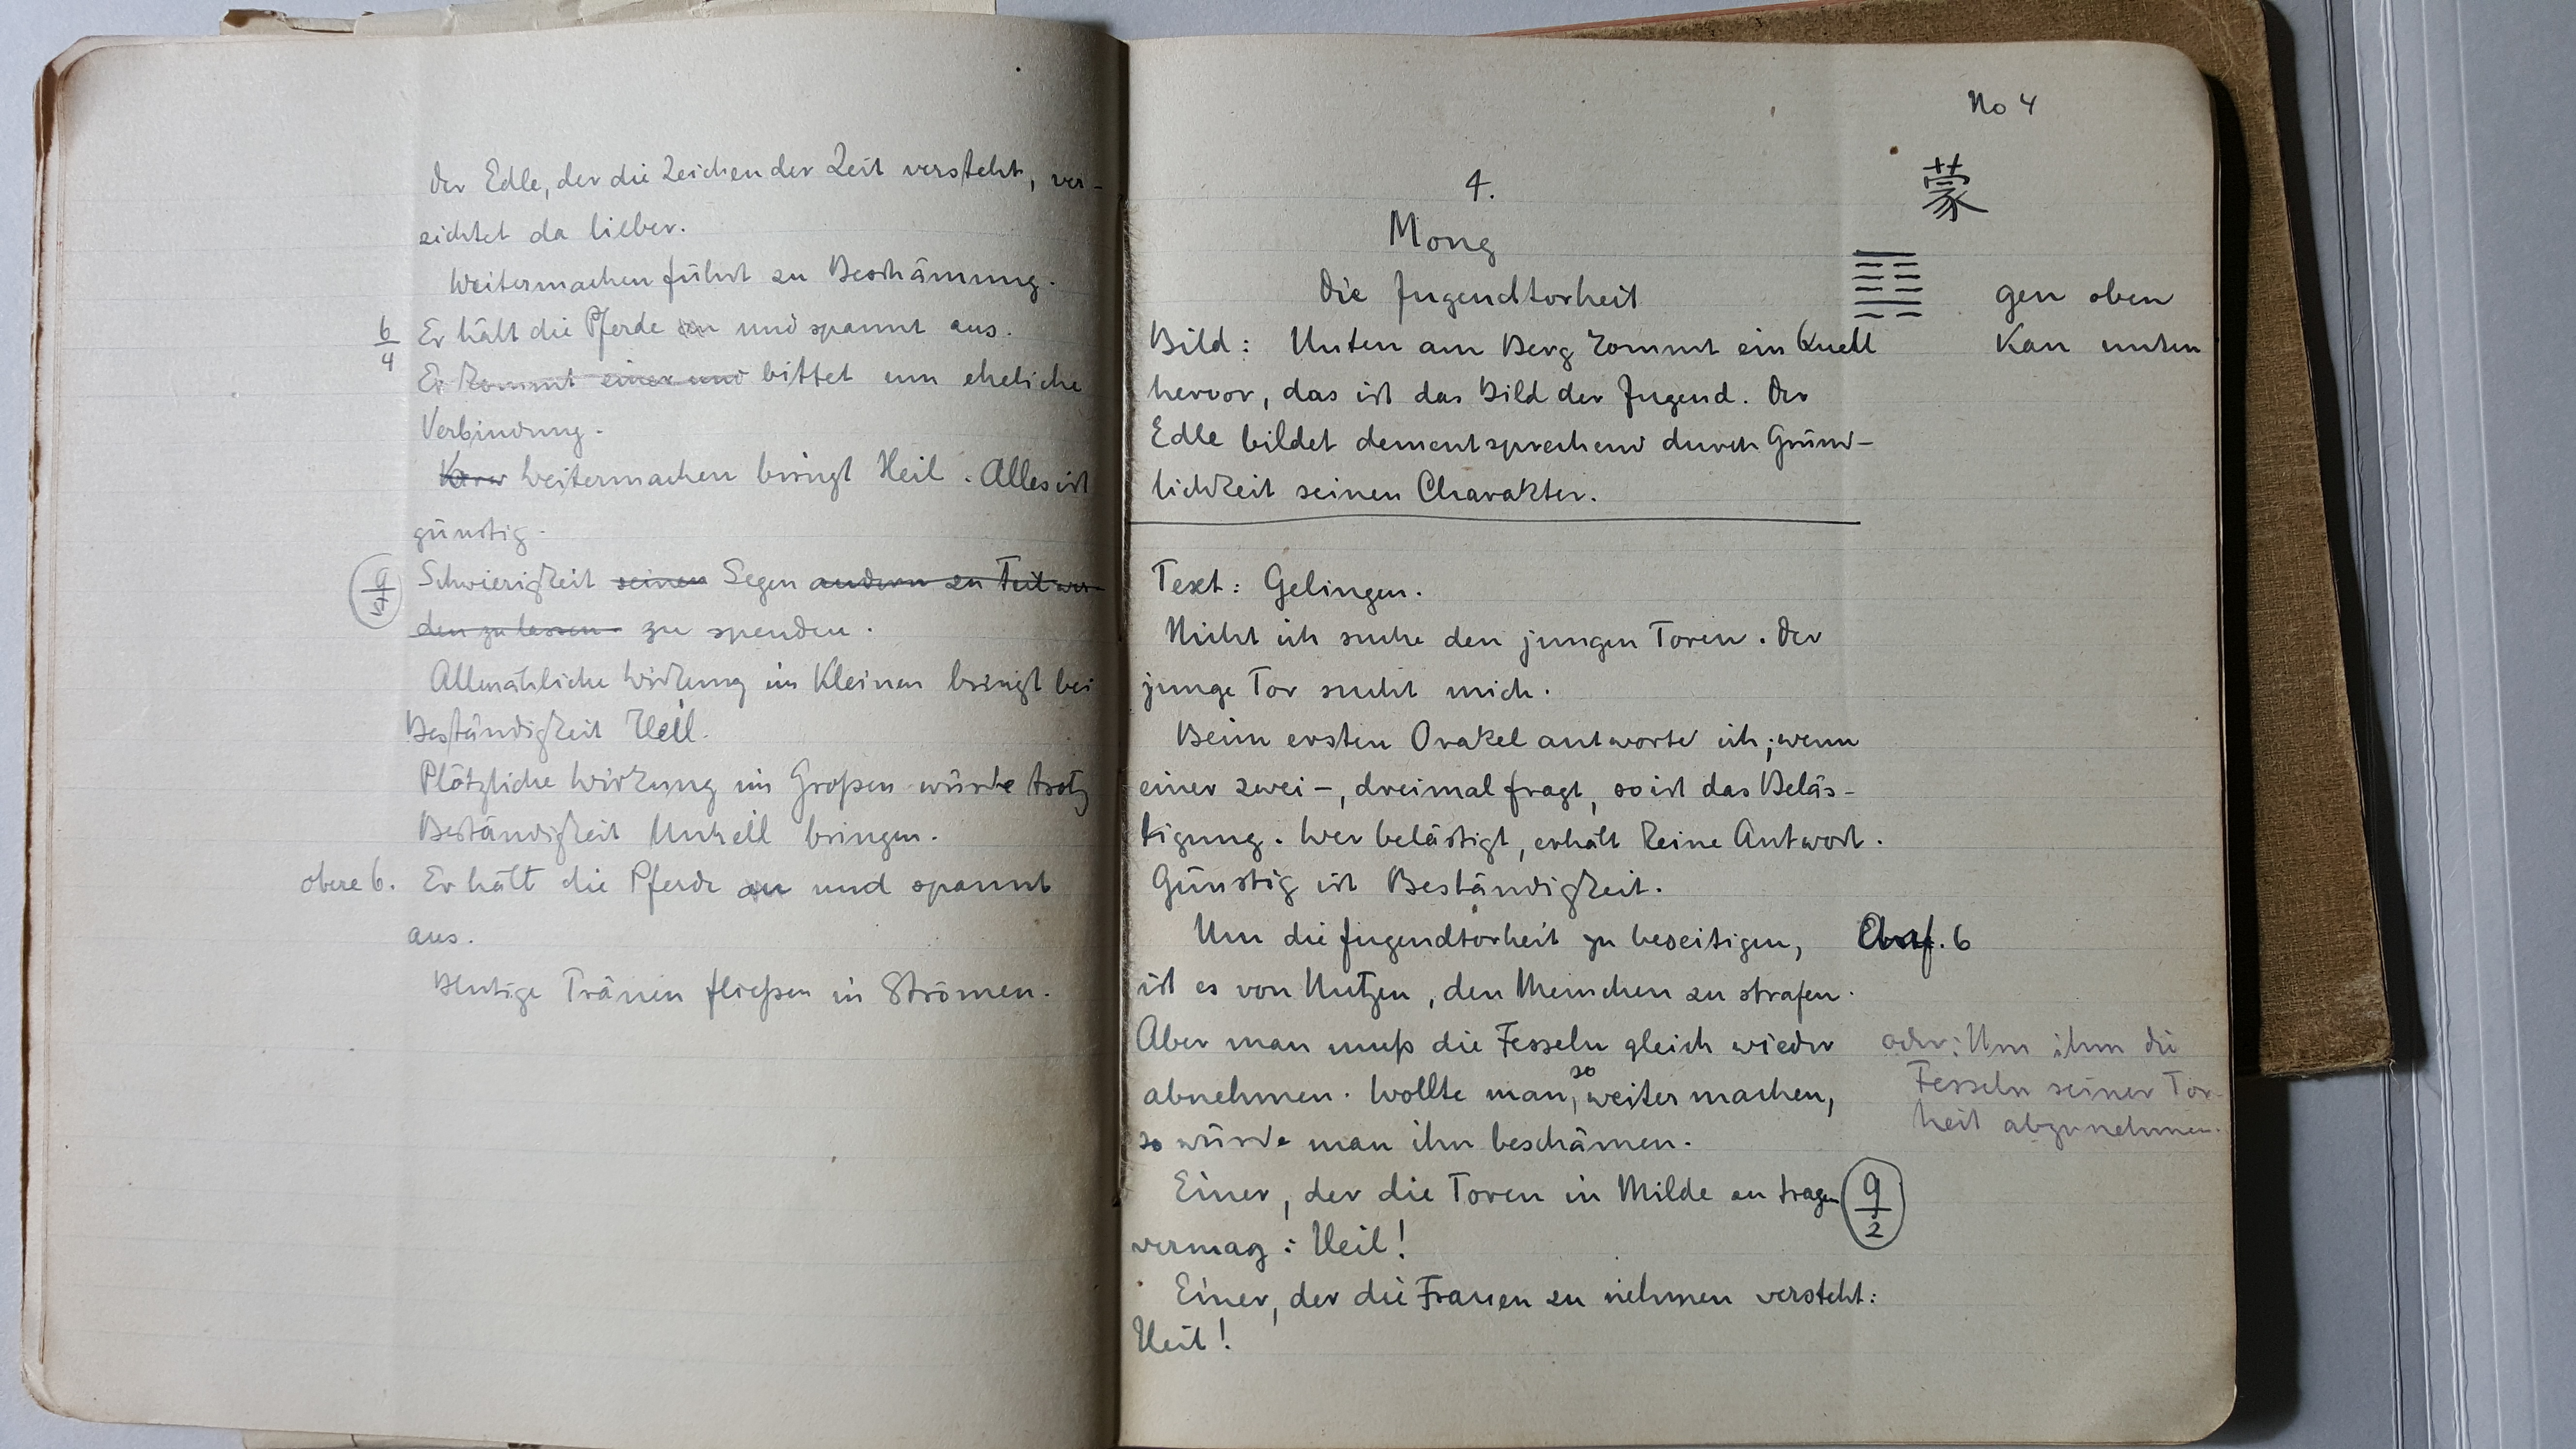 Der Edle, der die Zeichen der Zeit versteht, ver-
zichtet da lieber.
Weitermachen führt zu Beschämung.
6/4 Er hält die Pferde an und spannt aus.
Er kommt einer und bittet um eheliche
Verbindung.
Weitermachen bringt Heil. Alles ist
günstig.
9/5 Schwierigkeit seinen Segen andern zu Teil wer-
den zu lassen zu spenden.
Allmähliche Wirkung im Kleinen bringt bei
Beständigkeit Heil.
Plötzliche Wirkung im Großen würde trotz
Beständigkeit Unheil bringen.
obere 6. Er hält die Pferde an und spannt
aus.
Blutige Tränen fließen in Strömen.
No 4
蒙
4.
Mong
Die Jugendtorheit
gen oben
Kan unten
Bild: Unten am Berg kommt ein Quell
hervor, das ist das Bild der Jugend. Der
Edle bildet dementsprechend durch Gründ-
lichkeit seinen Charakter.
Text: Gelingen.
Nicht ich suche den jungen Toren. Der
junge Tor sucht mich.
Beim ersten Orakel antworte ich; wenn
einer zwei-, dreimal fragt, so ist das Beläs-
tigung. Wer belästigt, erhält keine Antwort.
Günstig ist Beständigkeit.
Um die Jugendtorheit zu beseitigen, 6
ist es von Nutzen, den Menschen zu strafen.
Aber man muß die Fesseln gleich wieder
abnehmen. Wollte man, so weiter machen,
so würde man ihn beschämen.
oder: Um ihm die
Fesseln seiner Tor-
heit abzunehmen.
Einer, der die Toren in Milde zu tragen 9/2
vermag: Heil!
Einer, der die Frauen zu nehmen versteht:
Heil!